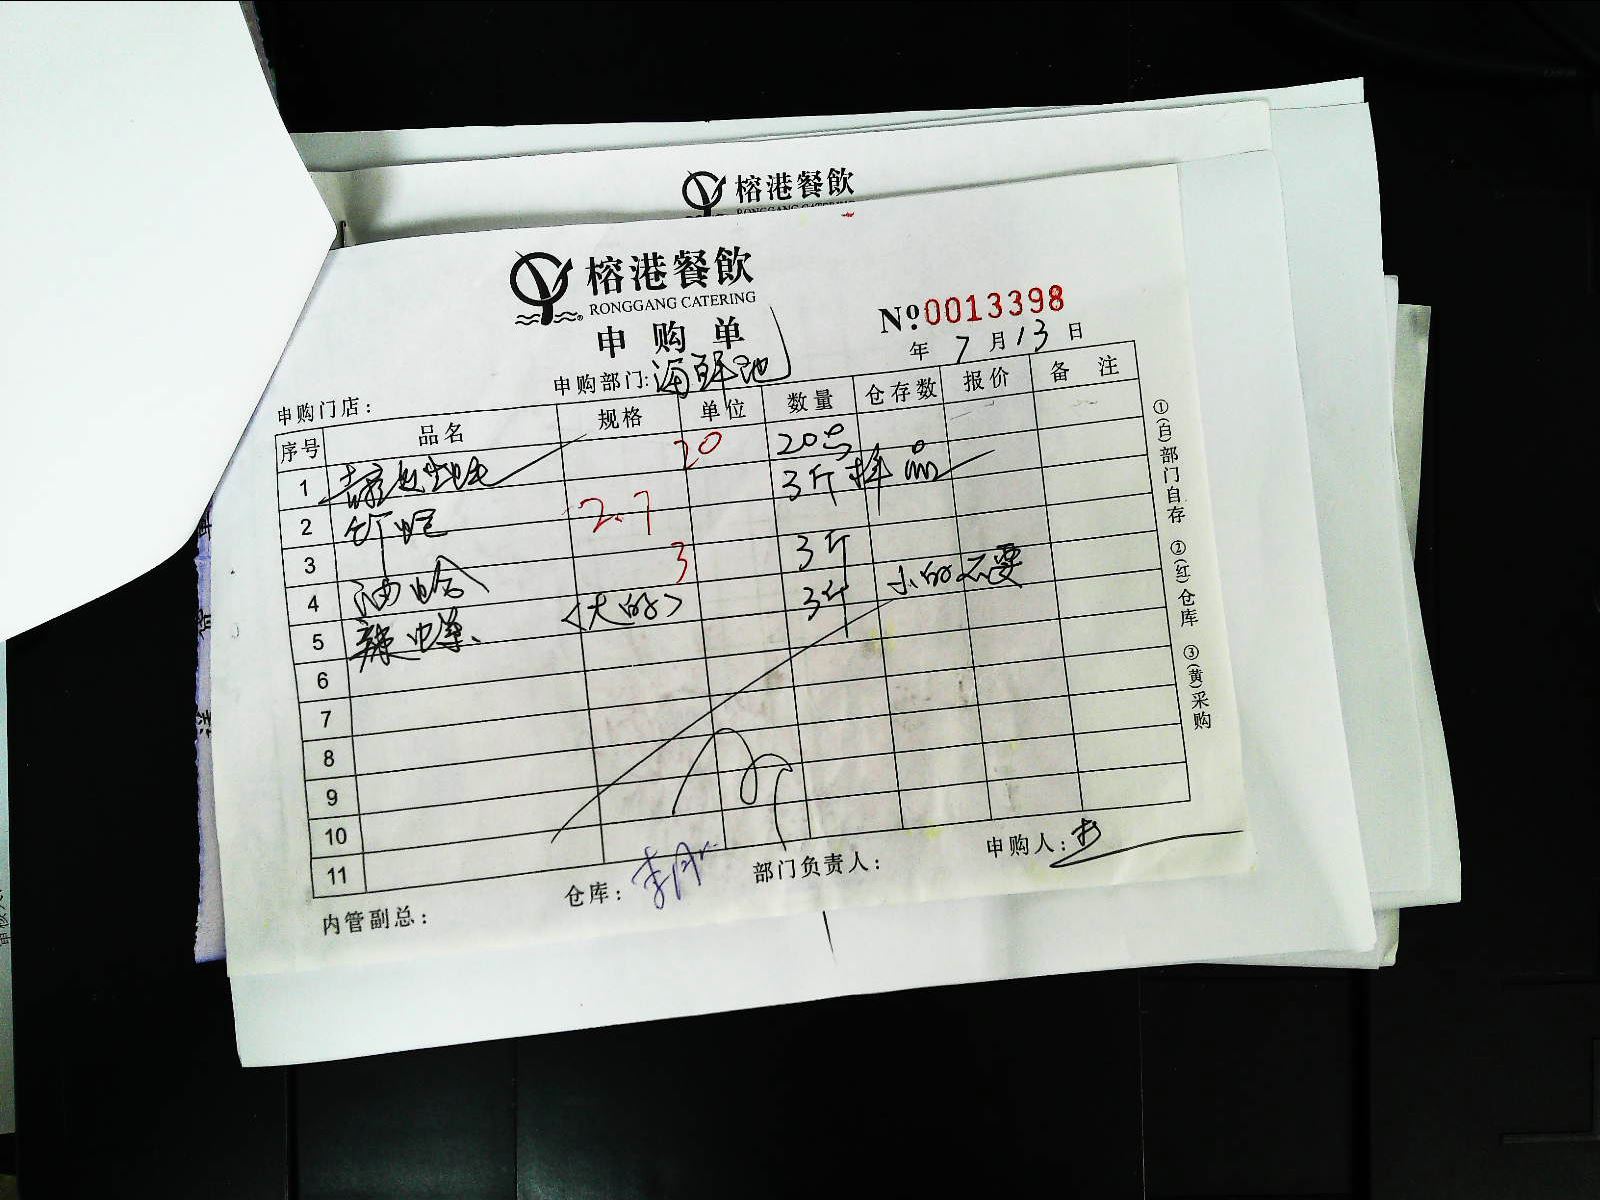 榕港餐飲
榕港餐飲
RONGGANG CATERING
申购单
No: 0013398
年 7 月 13 日
申购门店：
申购部门: 海鲜池
序号 品名 规格 单位 数量 仓存数 报价 备注
1 20 20号
2 2.7 3斤 样品
3 3 3斤
4 油蛤 <大的> 3斤 小的不要
5 辣螺
6
7
8
9
10
11
内管副总：
仓库：
部门负责人：
申购人：
①(白)部门自存 ②(红)仓库 ③(黄)采购